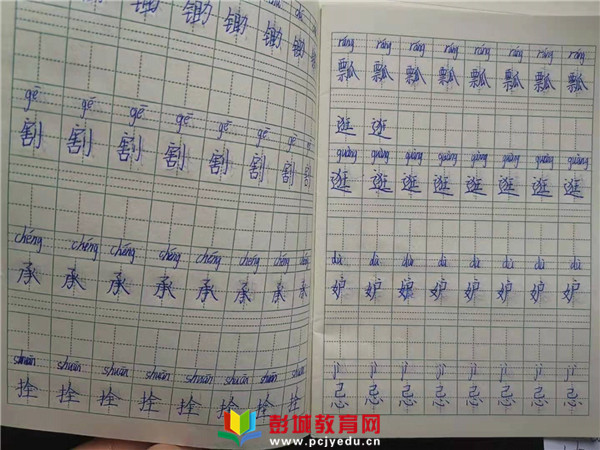 锄 锄 锄 锄 锄
gē gē gē gē gē gē gē
割 割 割 割 割 割 割 割
chéng chéng chéng chéng chéng chéng chéng chéng
承 承 承 承 承 承 承 承
shuān shuān shuān shuān shuān shuān shuān shuān
拴 拴 拴 拴 拴 拴 拴 拴
ráng ráng ráng ráng ráng ráng ráng ráng
瓢 瓢 瓢 瓢 瓢 瓢 瓢 瓢
逛 逛
guàng guàng guàng guàng guàng guàng guàng guàng
逛 逛 逛 逛 逛 逛 逛 逛
dù dù dù dù dù dù dù dù
妒 妒 妒 妒 妒 妒 妒 妒
jì jì jì jì jì jì jì jì
忌 忌 忌 忌 忌 忌 忌 忌
彭城教育网
www.pcjyedu.cn